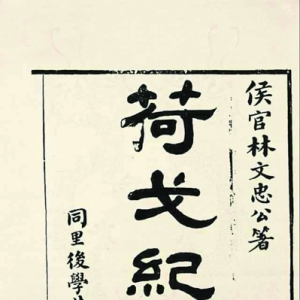 侯官林文忠公箸
荷戈紀
同里後學